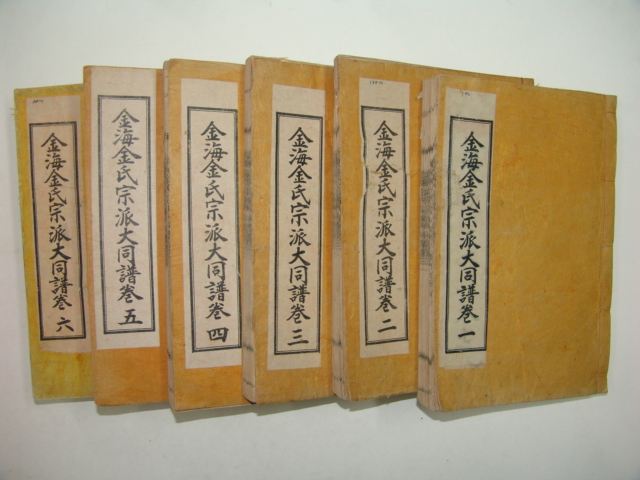 金海金氏宗派大同譜巻一
金海金氏宗派大同譜巻二
金海金氏宗派大同譜巻三
金海金氏宗派大同譜巻四
金海金氏宗派大同譜巻五
金海金氏宗派大同譜巻六